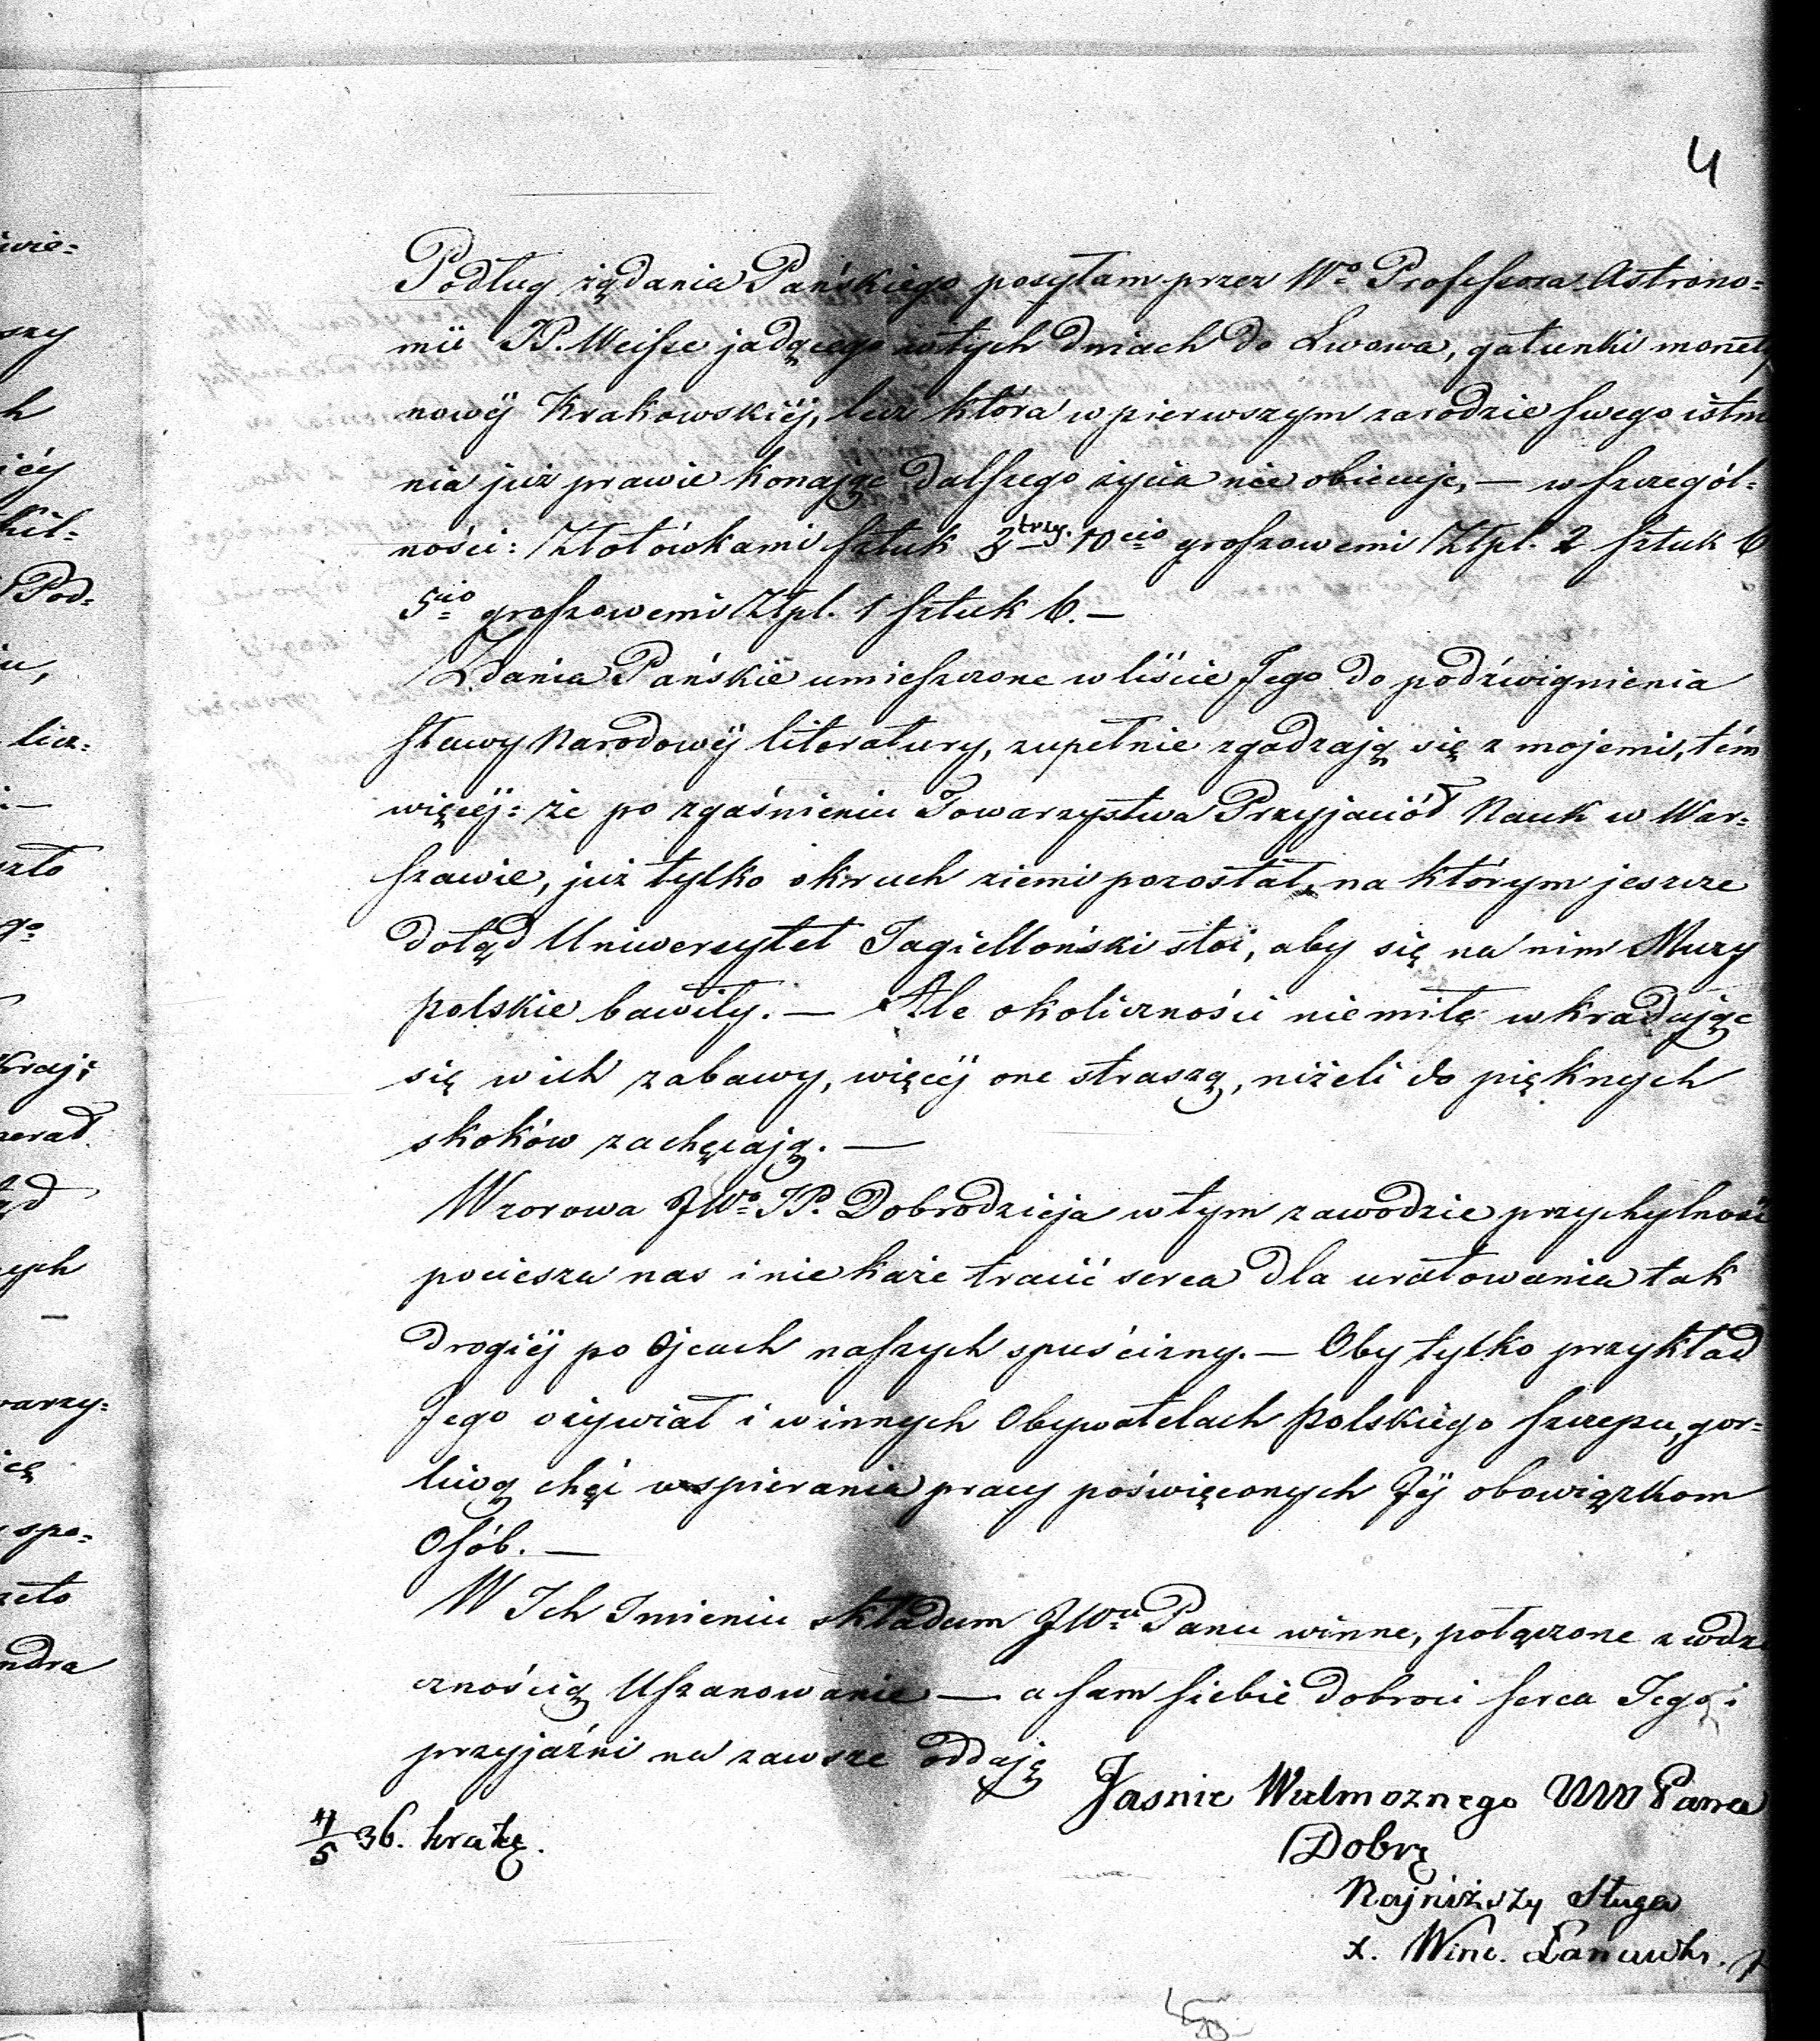 4
Podług żądania Pańskiego posyłam przez Wo Professora Astrono=
mii JP. Weisse jadącego w tych dniach do Lwowa, gatunki monety
nowéj Krakowskiéj, lecz która w pierwszym zarodzie swego istnie
nia już prawie konając dalszego życia nie obiecuje, — w szczegól=
ności: Złotówkami sztuk 3 trzy. 10cio groszowemi Złpl. 2 sztuk 6
5cio groszowemi Złpl. 1 sztuk 6. —
Zdania Pańskie umieszczone w liście Jego do podźwignienia
sławy Narodowéj literatury, zupełnie zgadzają się z mojemi, tém
więcéj: że po zgaśnieniu Towarzystwa Przyjaciół Nauk w War=
szawie, już tylko okruch ziemi pozostał, na którym jeszcze
dotąd Uniwersytet Jagielloński stoi, aby się na nim Muzy
polskie bawiły. — Ale okoliczności niemiłe wkradając
się w ich zabawy, więcéj one straszą, niżeli do pięknych
skoków zachęcają. —
Wzorowa JWo JP. Dobrodzieja w tym zawodzie przychylność
pociesza nas i nie każe tracić serca dla uratowania tak
drogiéj po Ojcach naszych spuścizny. — Oby tylko przykład
Jego ożywiał i w innych Obywatelach polskiego szczepu, gor=
liwą chęć wspierania pracy poświęconych Jéj obowiązkom
Osób. —
W Ich Imieniu składam JWu Panu winne, połączone z wdzię
cznością Uszanowanie — a sam siebie dobroci serca Jego i
przyjaźni na zawsze oddaję
Jasnie Wielmoznego WW Pana
4/5 36. Krakę.
Dobrę
Najniższy Sługa
x. Winc. Łancucki.
iwie=
szy
h
iéy
Pod=
licz=
szło
go
Kraj;
nych
warzy=
spo=
ndra